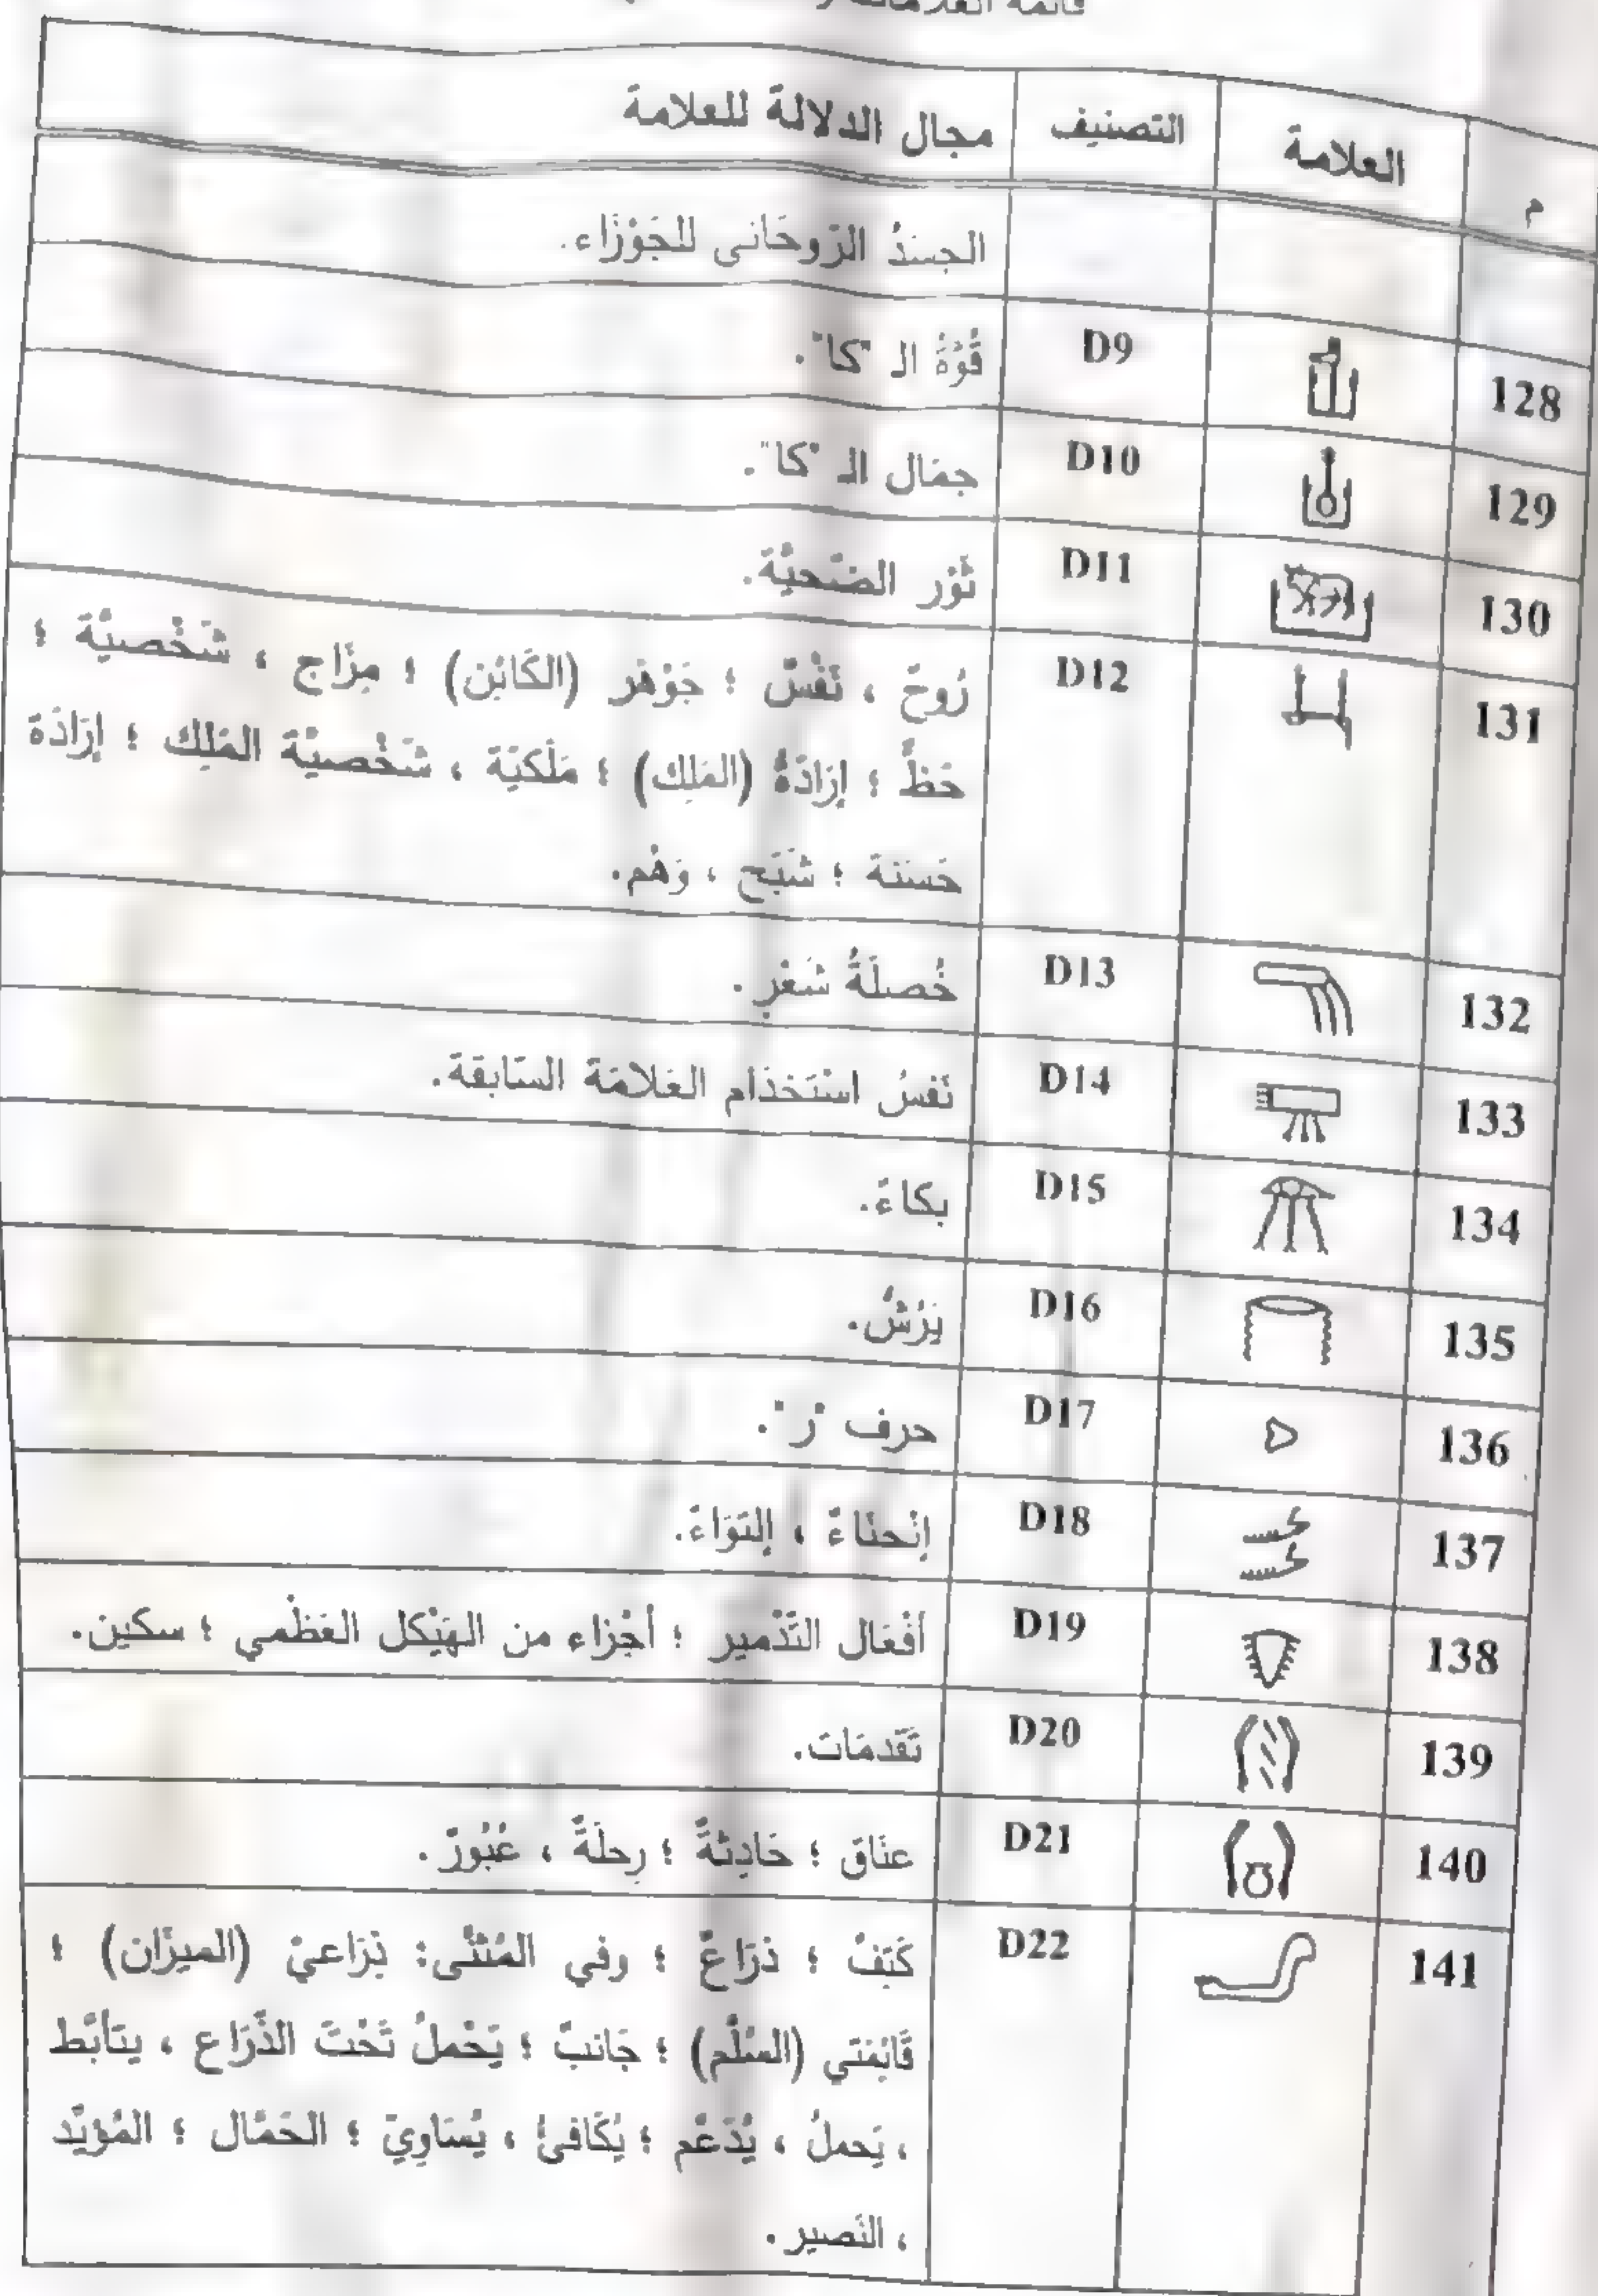 قائمة
م العلامة التصنيف مجال الدلالة للعلامة
الجسدُ الرّوحَانى للجَوْزَاء.
128 D9 قُوَّةُ الـ "كا".
129 D10 جمَال الـ "كا".
130 D11 ثَوْر الضَّحيَّة.
131 D12 رُوحٌ ، نَفْسٌ ؛ جَوْهَر (الكَائِن) ؛ مِزَاج ، شَخْصيَّة ؛
حَظٌّ ؛ إرَادَةُ (المَلِك) ؛ مَلَكيَّة ، شَخْصيَّة المَلِك ؛ إرَادَة
حَسَنَة ؛ شَبَح ، وَهْم.
132 D13 خُصلَةُ شَعْرٍ.
133 D14 نَفسُ اسْتَخدَام العَلامَة السَّابقَة.
134 D15 بكاءً.
135 D16 يَرُشُّ.
136 D17 حرف "ر".
137 D18 إنْحنَاءً ، إلتوَاءً.
138 D19 أفْعَال التَّدْمير ؛ أجْزاء من الهَيْكل العَظْمي ؛ سكين.
139 D20 تَقَدمَات.
140 D21 عنَاق ؛ حَادِثةً ؛ رِحلَةً ، عُبُورٌ.
141 D22 كَتِفٌ ؛ ذرَاعٌ ؛ وفي المُثنَّى: ذِرَاعيّ (الميزَان) ؛
قَائِمَتي (السُلَّم) ؛ جَانبٌ ؛ يَحْملُ تَحْتَ الذِّرَاع ، يتأبَّط
، يَحملُ ، يُدَعِّم ؛ يُكَافئُ ، يُسَاوِيّ ؛ الحَمَّال ؛ المُؤيِّد
، النَصير.